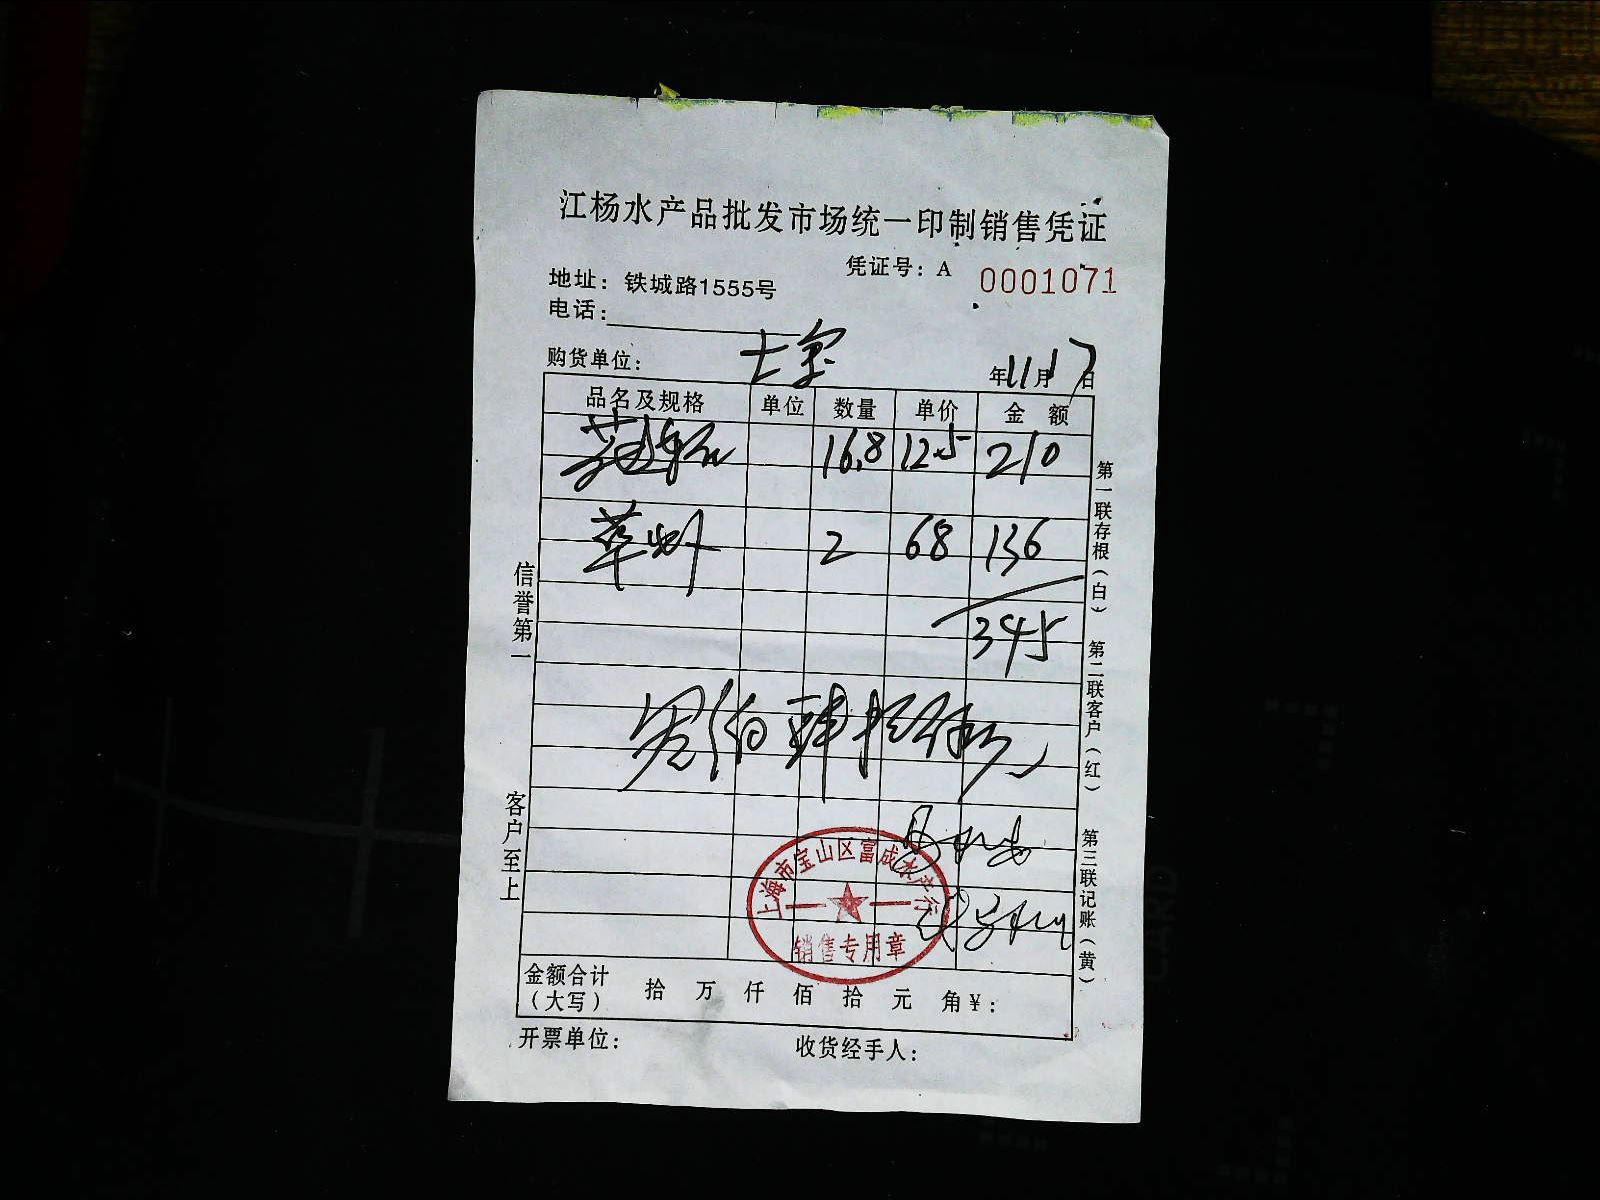 江杨水产品批发市场统一印制销售凭证
凭证号：A 0001071
地址：铁城路1555号
电话：
购货单位：
年11月17日
品名及规格 单位 数量 单价 金额
16.8 12.5 210
草虾 2 68 136
345
叁佰肆拾伍元
上海市宝山区富成水产行
销售专用章
金额合计（大写） 拾 万 仟 佰 拾 元 角 ¥：
开票单位： 收货经手人：
信誉第一
客户至上
第一联存根（白） 第二联客户（红） 第三联记账（黄）